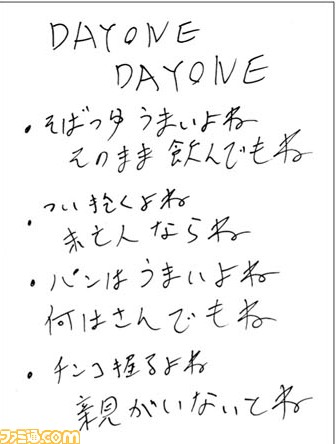 DAYONE
DAYONE
・そばつゆうまいよね
そのまま飲んでもね
・つい抱くよね
未亡人ならね
・パンはうまいよね
何はさんでもね
・チンコ握るよね
親がいないとね
ファミ通.com